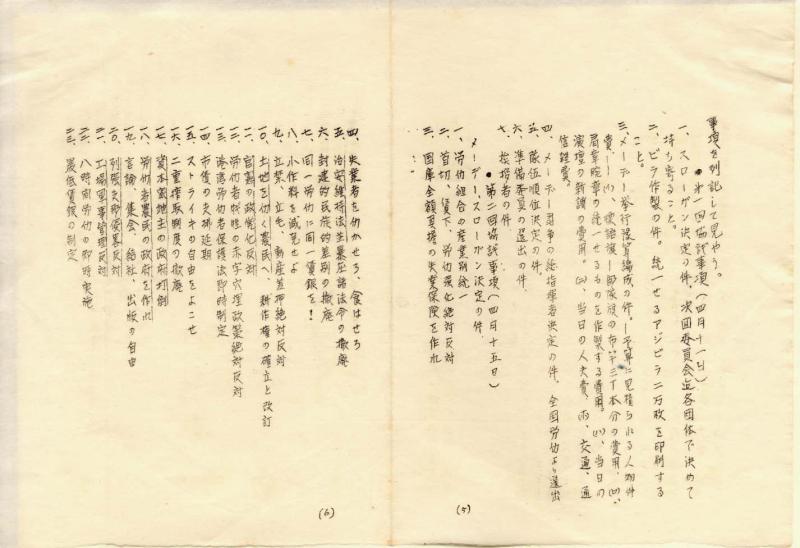 事項を列記して見やう。
●第一回協議事項(四月十一日)
一、スローガン決定の件、次回委員会迄各団体で決めて
持ち寄ること。
二、ビラ作製の件。統一せるアジビラ二万枚を印刷する
こと。
三、メーデー挙行予算編成の件。
費、
肩章腕章の統一せるものを作製する費用。(ハ)、当日の
演壇の新調の費用。(ニ)、当日の人夫費、(ホ)、交通、通
信雑費。
四、メーデー闘争の総指揮者決定の件。全国労働より選出
五、隊伍順位決定の件。
六、準備委員の選出の件。
七、挨拶者の件。
●第二回協議事項(四月十五日)
メーデースローガン決定の件。
一、労働組合の産業別統一
二、首切、賃下、労働強化絶対反対
三、国庫全額負担の失業保険を作れ
(5)
四、失業者を働かせろ、食はせろ
五、治安維持法其の他
六、封建的民族的差別の撤廃
七、同一労働に同一賃銀を!
八、小作料を減免せよ
九、立禁、立毛、動産差押絶対反対
一〇、土地を働く農民へ、耕作権の確立と改訂
一一、
一二、労働者犠牲の赤字穴埋政策絶対反対
一三、港湾労働者保護法即時制定
一四、市債の支払延期
一五、ストライキの自由をよこせ
一六、二重搾取制度の撤廃
一七、資本家地主の政府打倒
一八、労働者農民の政府を作れ
一九、言論、集会、結社、出版の自由
二〇、
二一、工場
二二、八時間労働の即時実施
二三、最低賃銀の制定
(6)